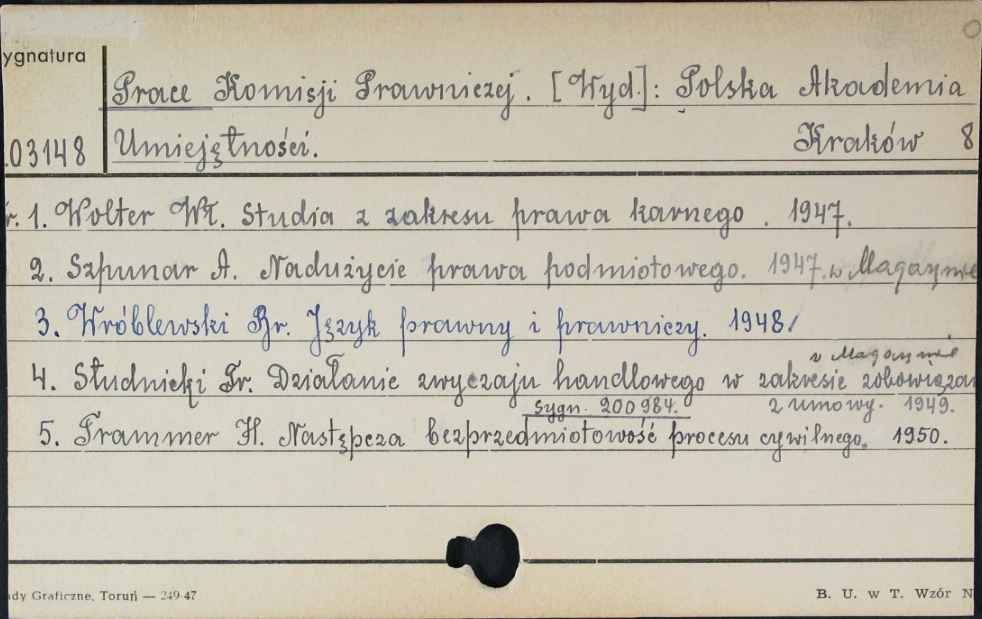 ygnatura
Prace Komisji Prawniczej. [Wyd.]: Polska Akademia
03148 Umiejętności. Kraków 8
r. 1. Wolter Wł. Studia z zakresu prawa karnego. 1947.
2. Szpunar A. Nadużycie prawa podmiotowego. 1947. w Magazynie
3. Wróblewski Br. Język prawny i prawniczy. 1948/
w Magazynie
4. Studnicki Fr. Działanie zwyczaju handlowego w zakresie zobowiązań
Sygn. 200984. z umowy. 1949.
5. Trammer H. Następcza bezprzedmiotowość procesu cywilnego. 1950.
ady Graficzne, Toruń — 249-47 B. U. w T. Wzór N